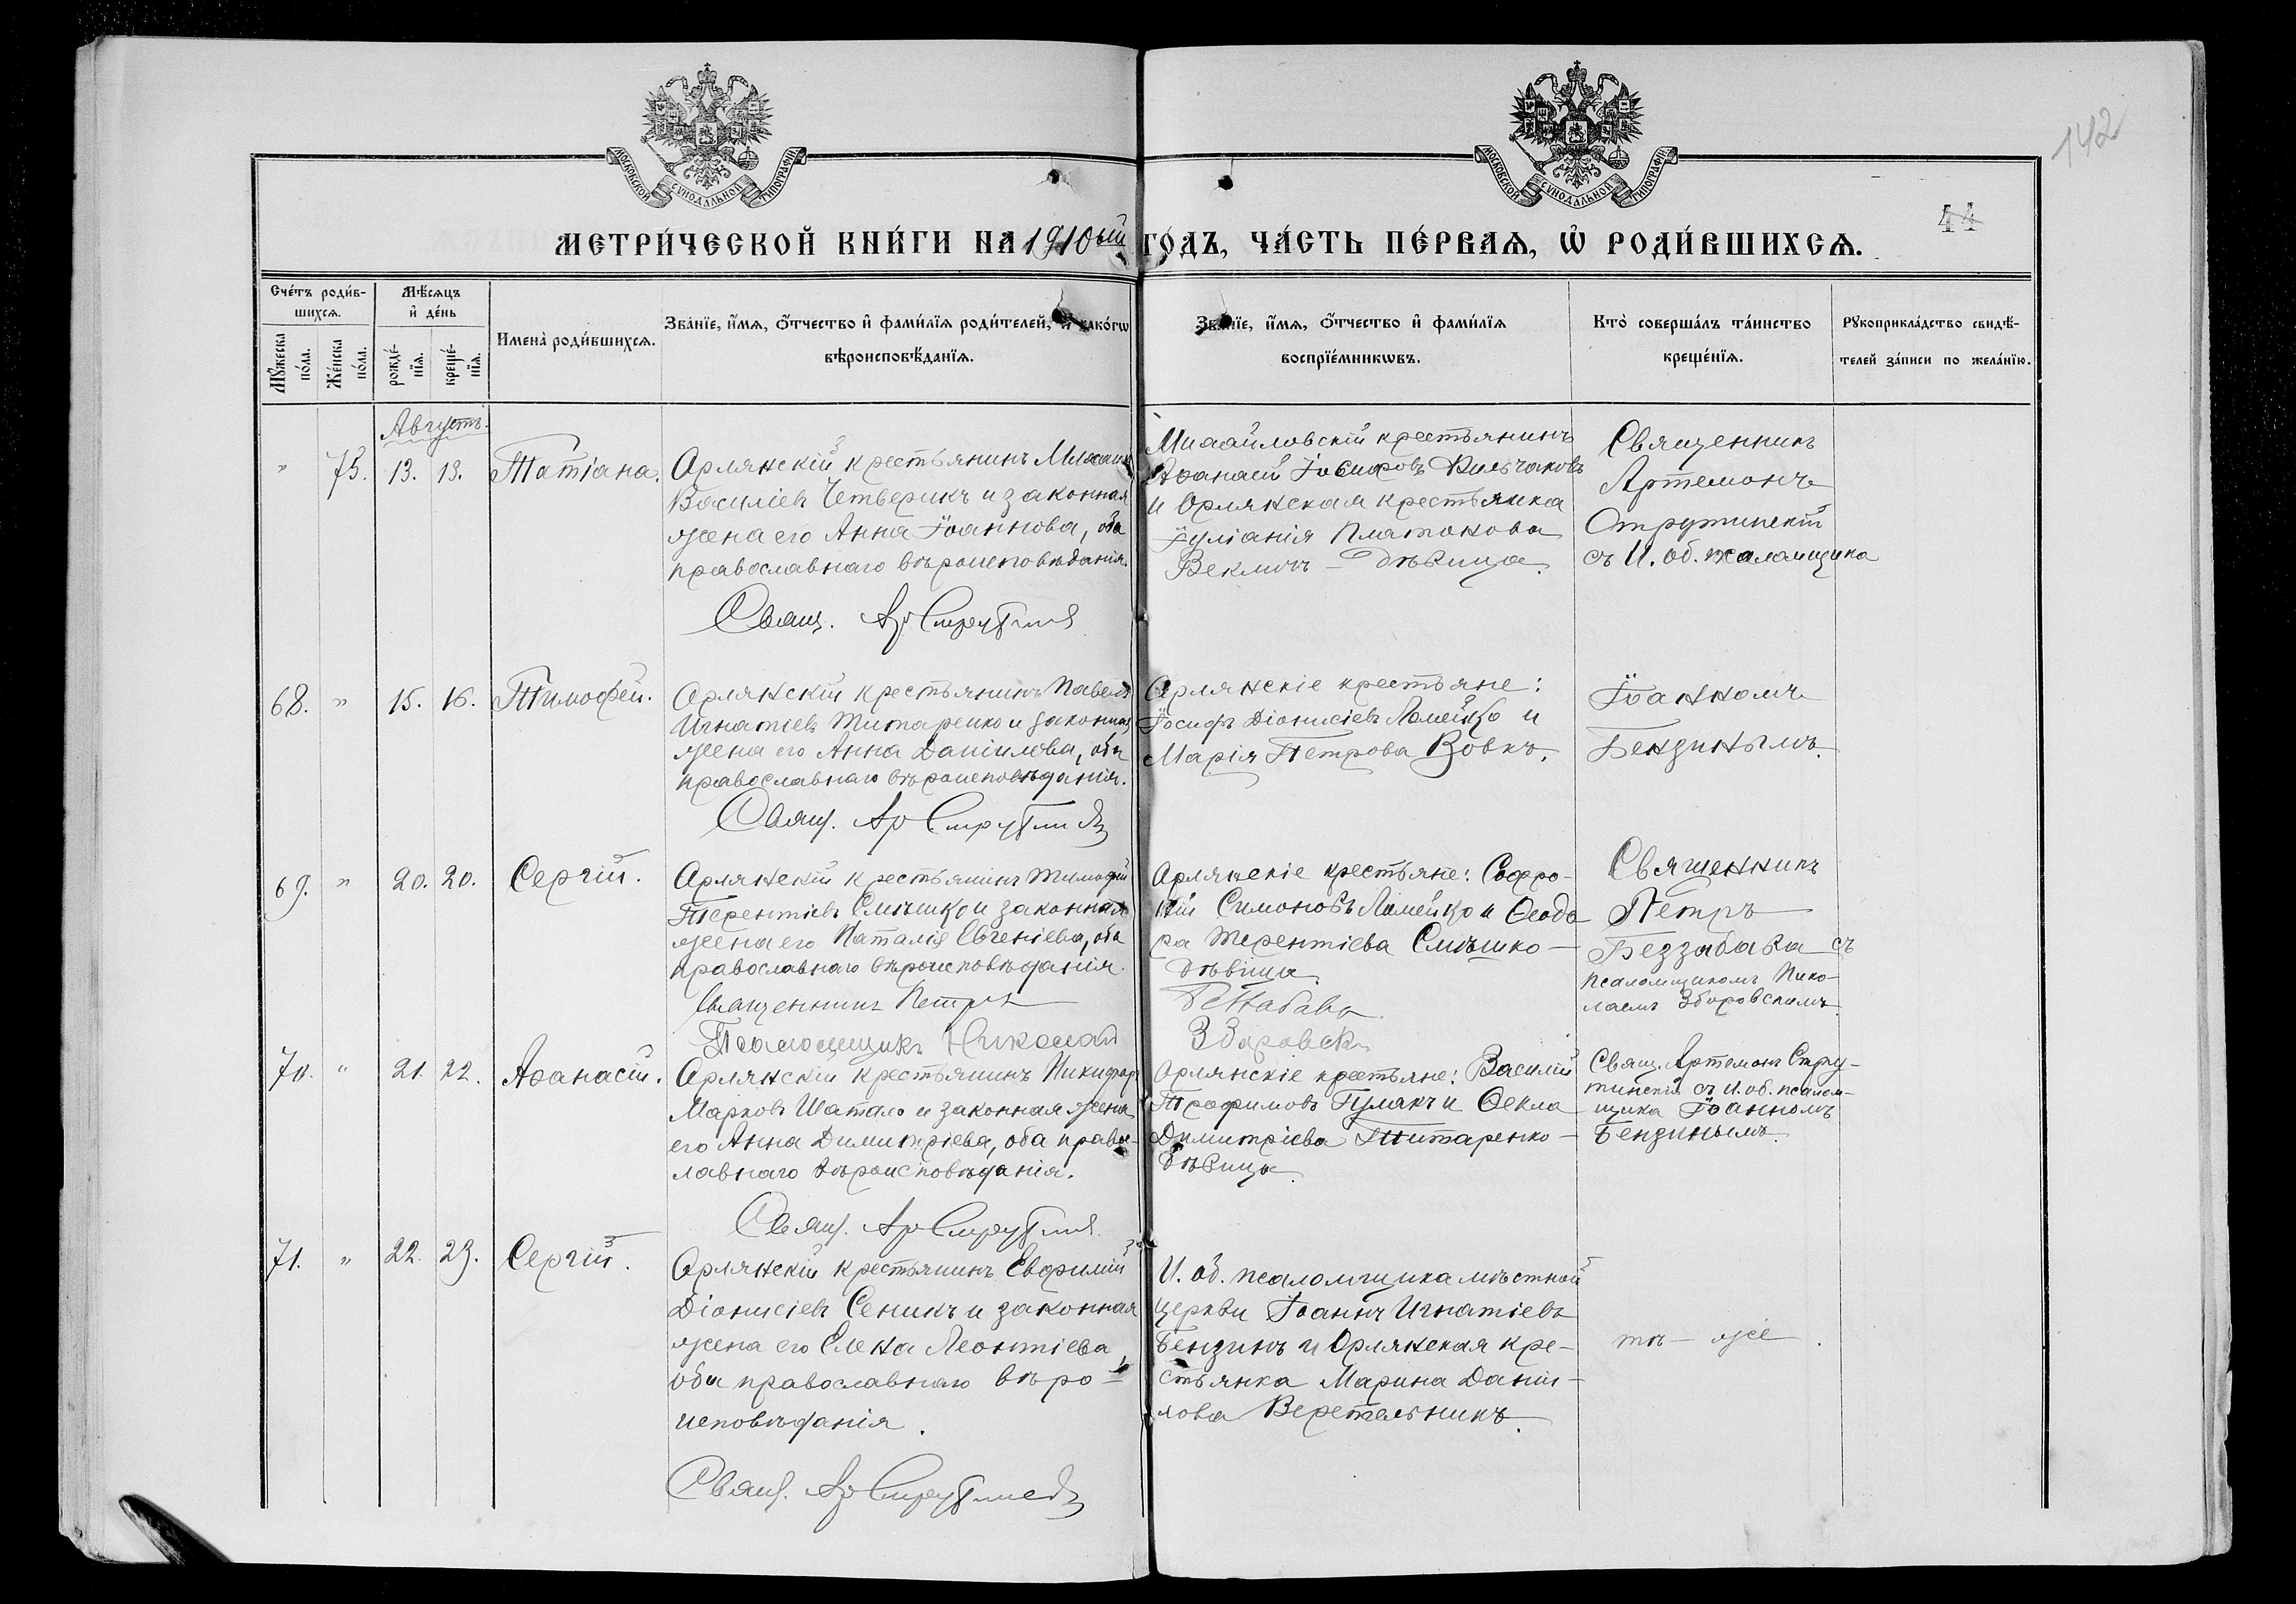 142
44
МОСКОВСКОЙ СѴНОДАЛЬНОЙ ТИПОГРАФІИ
МОСКОВСКОЙ СѴНОДАЛЬНОЙ ТИПОГРАФІИ
МЕТРИ́ЧЕСКОЙ КНИ́ГИ НА 1910ый ГО́ДЪ, ЧА́СТЬ ПЕ́РВАѦ, Ѡ҆ РОДИ́ВШИХСѦ.
Сче́тъ роди́в-
шихсѧ.
Мꙋ́жеска по́ла.
Же́нска по́ла.
Мѣ́сѧцъ
и҆ де́нь
рожде́-
нїѧ.
креще́-
нїѧ.
И҆мена̀ роди́вшихсѧ.
Зва́нїе, и҆́мѧ, ѻ҆́тчество и҆ фами́лїѧ роди́телей, и҆ како́гѡ
вѣроисповѣ́данїѧ.
Зва́нїе, и҆́мѧ, ѻ҆́тчество и҆ фами́лїѧ
воспрїе́мникѡвъ.
Кто̀ соверша́лъ та́инство
креще́нїѧ.
Рꙋкоприкла́дство свидѣ́-
телей за́писи по жела́нїю.
Августъ.
" 75. 13. 13. Татіана.
Орлянскій крестьянинъ Михаилъ
Василіевъ Четверикъ и законная
жена его Анна Іоаннова, оба
православнаго вѣроисповѣданія.
Свящ. Ар Струтинскі
Михайловскій крестьянинъ
Аѳанасій Іосифовъ Вильчаковъ
и Орлянская крестьянка
Іуліанія Платонова
Векличъ – дѣвица.
Священникъ
Артемонъ
Струтинскій
съ И. об. псаломщика
68. " 15. 16. Тимоѳей.
Орлянскій крестьянинъ Павелъ
Игнатіевъ Титаренко и законная
жена его Анна Даніилова, оба
православнаго вѣроисповѣданія.
Свящ. Ар Струтинскій
Орлянскіе крестьяне:
Іосифъ Діонисіевъ Ломейко и
Марія Петрова Вовкъ.
Іоанномъ
Бензинымъ.
69. " 20. 20. Сергій.
Орлянскій крестьянинъ Тимоѳей
Терентіевъ Смѣшко и законная
жена его Наталія Евгеніева, оба
православнаго вѣроисповѣданія.
Священникъ Петръ
Псаломщикъ Николай
Орлянскіе крестьяне: Софро-
ній Симоновъ Ломейко и Ѳеодо
ра Терентіева Смѣшко –
дѣвица.
Збаровскі
Священникъ
Петръ
Беззабава съ
псаломщикомъ Нико-
лаемъ Збаровскимъ.
70. " 21. 22. Аѳанасій.
Орлянскій крестьянинъ Никифоръ
Марковъ Шатало и законная жена
его Анна Димитріева, оба правос-
лавнаго вѣроисповѣданія.
Свящ. Ар Струтинскі
Орлянскіе крестьяне: Василій
Трофимовъ Гулякъ и Ѳекла
Димитріева Титаренко –
дѣвица.
Свящ. Артемонъ Стру-
тинскій съ И. об. псалом-
щика Іоанномъ
Бензинымъ.
71. " 22. 23. Сергій.
Орлянскій крестьянинъ Евфимій
Діонисіевъ Сеникъ и законная
жена его Елена Леонтіева,
оба православнаго вѣро-
исповѣданія.
Свящ. Ар Струтинскій
И. об. псаломщика мѣстной
церкви Іоаннъ Игнатіевъ
Бензинъ и Орлянская кре-
стьянка Марина Даніи-
лова Веретельникъ.
тѣ – же.